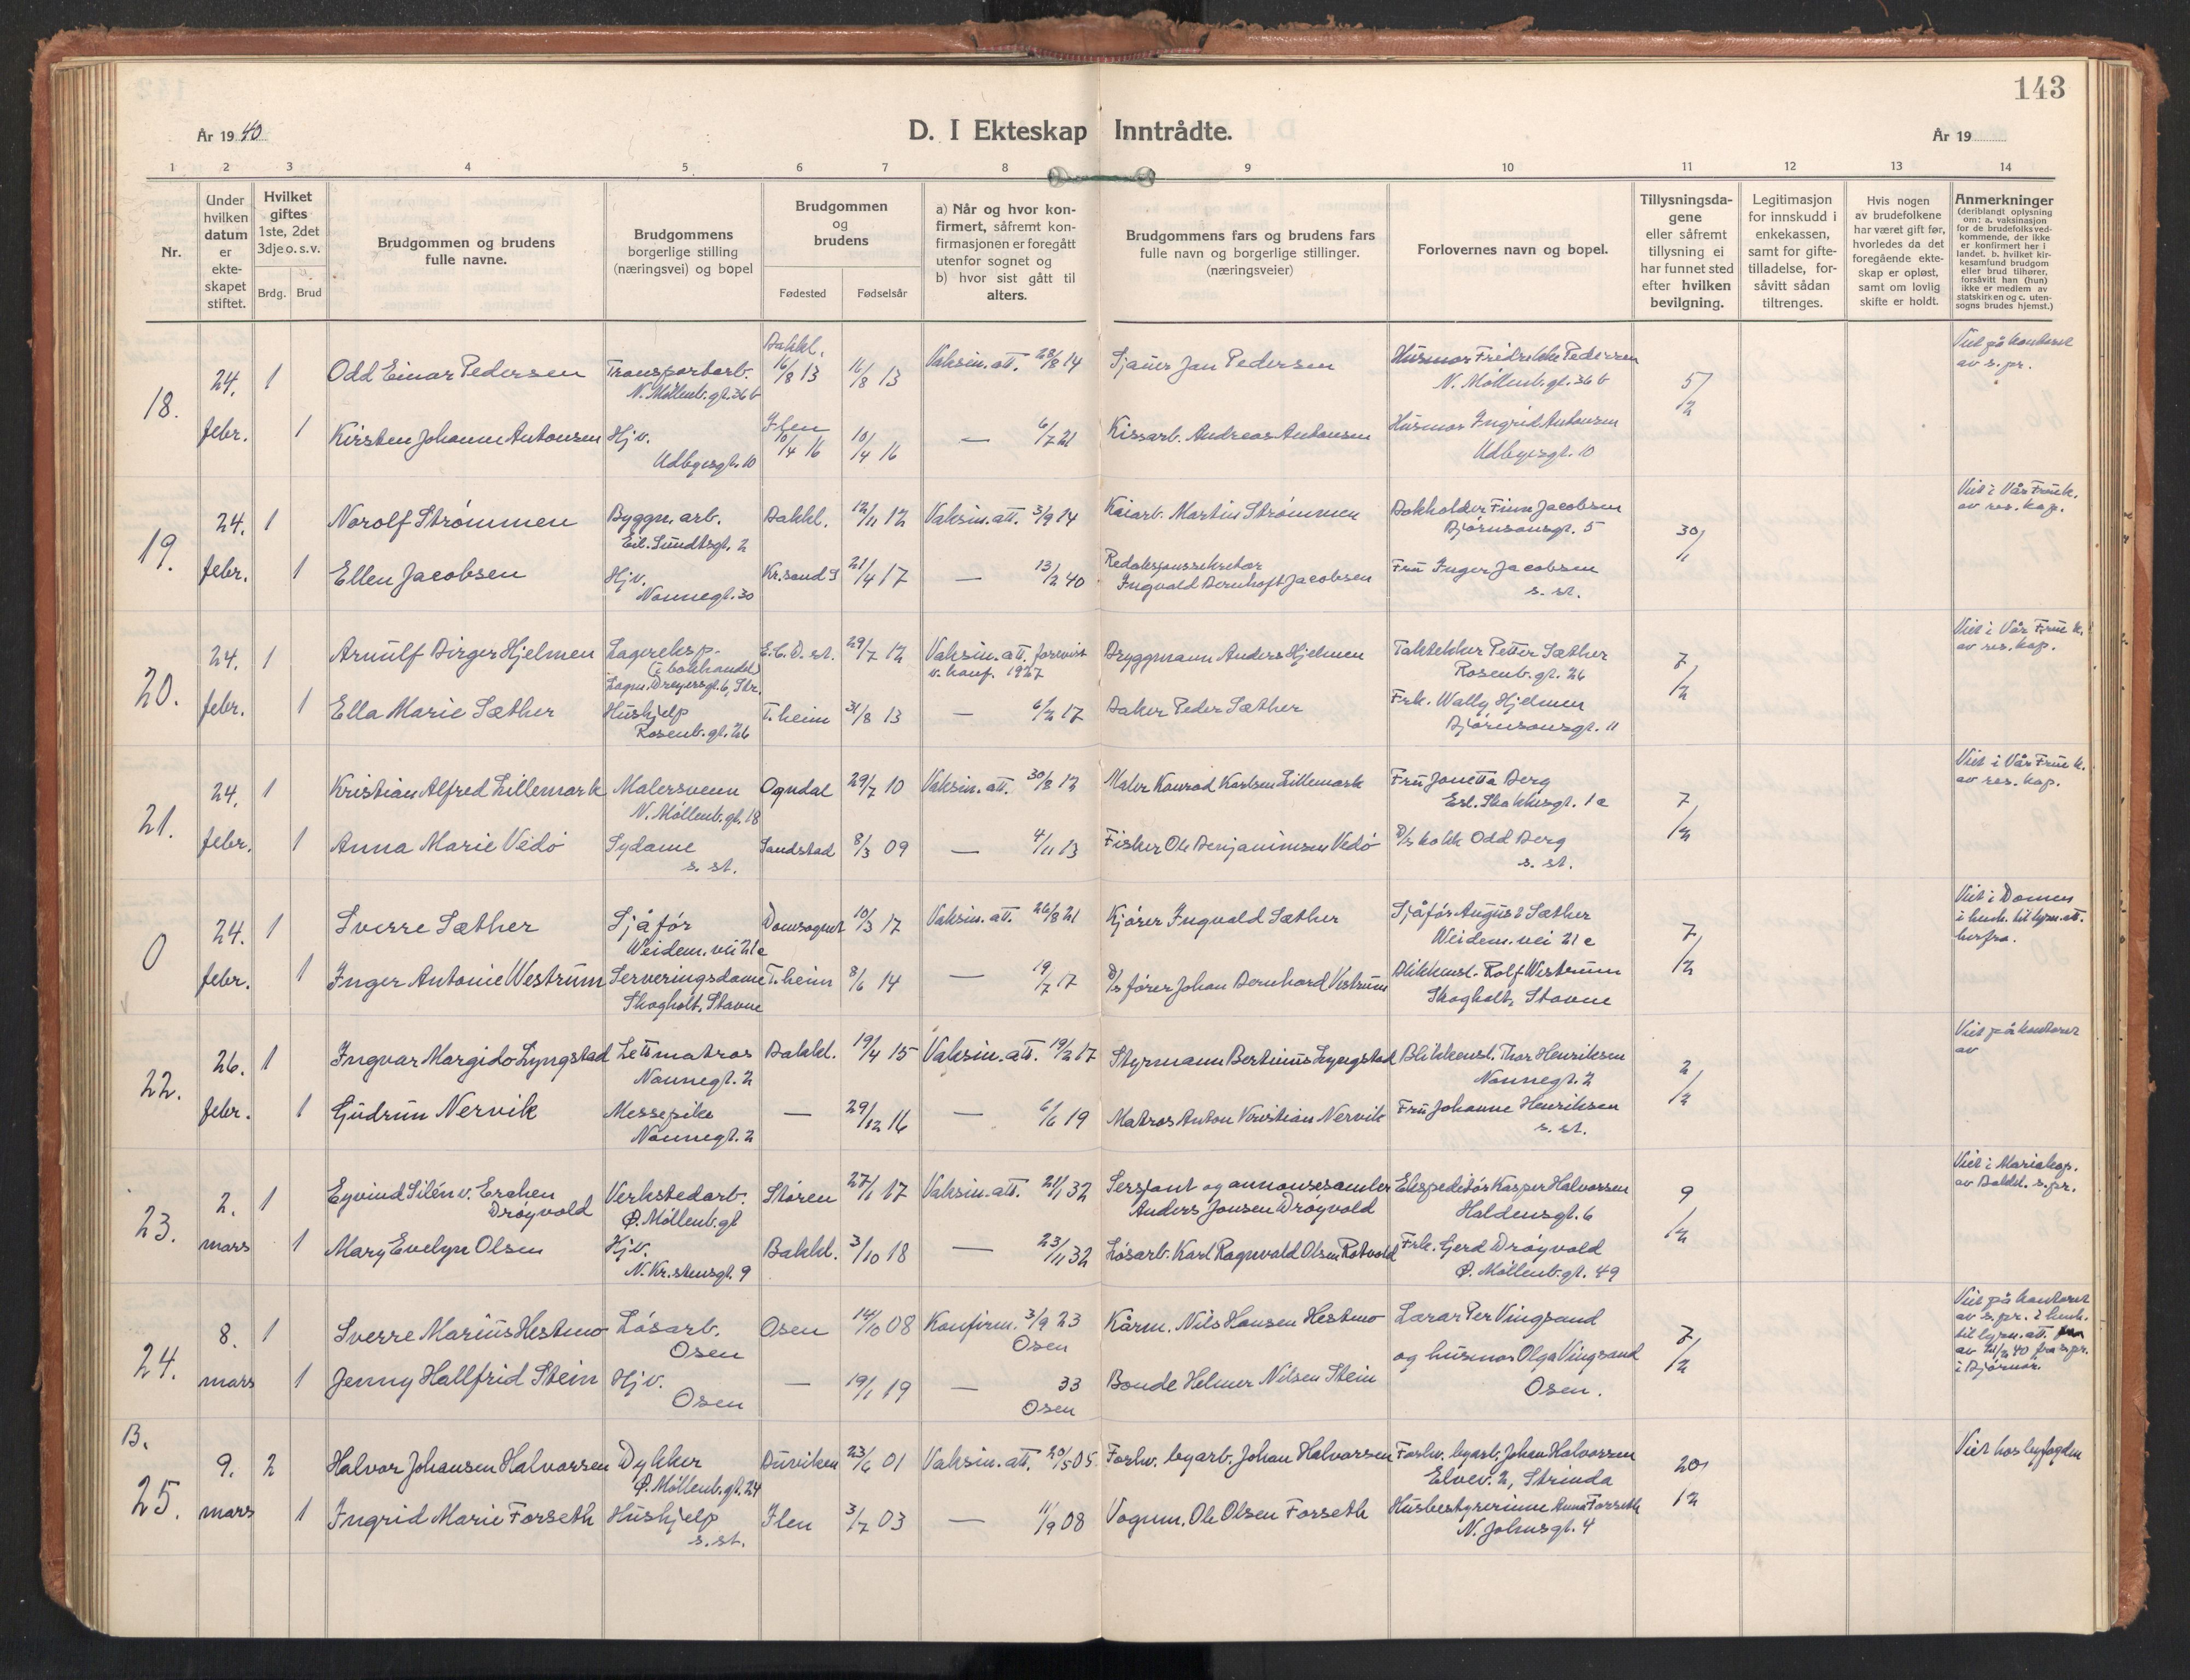 143
År 1940
D. I Ekteskap Inntrådte.
År 19
1 2 3 4 5 6 7 8 9 10 11 12 13 14
Nr.
Under hvilken datum er ekteskapet stiftet.
Hvilket giftes 1ste, 2det 3dje o. s. v.
Brdg. Brud
Brudgommen og brudens fulle navne.
Brudgommens borgerlige stilling (næringsvei) og bopel
Brudgommen og brudens
Fødested Fødselsår
a) Når og hvor konfirmert, såfremt konfirmasjonen er foregått utenfor sognet og
b) hvor sist gått til alters.
Brudgommens fars og brudens fars fulle navn og borgerlige stillinger. (næringsveier)
Forlovernes navn og bopel.
Tillysningsdagene eller såfremt tillysning ei har funnet sted efter hvilken bevilgning.
Legitimasjon for innskudd i enkekassen, samt for giftetilladelse, forsåvitt sådan tiltrenges.
Hvis nogen av brudefolkene har været gift før, hvorledes da det foregående ekteskap er opløst, samt om lovlig skifte er holdt.
Anmerkninger
(deriblandt oplysning om: a. vaksinasjon for de brudefolks vedkommende, der ikke er konfirmert her i landet. b. hvilket kirkesamfund brudgom eller brud tilhører, forsåvitt han (hun) ikke er medlem av statskirken og c. utensogns brudes hjemst.)
18.
24. 1 Odd Einar Pedersen Transportarb. Bakkl. 16/8 13 16/8 13 Vaksin. att. 28/8 14 Sjauer Jan Pedersen Husmor Fredrikke Pedersen 5/2 Viet på kontoret
N. Møllenb. gt. 36 b N. Møllenb. gt. 36 b av s. pr.
febr. 1 Kirsten Johanne Antonsen Hjv. Ilen 10/4 16 10/4 16 — 6/7 21 Kissarb. Andreas Antonsen Husmor Ingrid Antonsen
Udbyesgt. 10 Udbyesgt. 10
19.
24. 1 Norolf Strømmen Byggn. arb. Bakkl. 12/11 12 Vaksin. att. 3/9 14 Kaiarb. Martin Strømmen Bokholder Finn Jacobsen 30/1 Viet i Vår Frue k.
Eil. Sundtsgt. 2 Bjørnsonsgt. 5 av res. kap.
febr. 1 Ellen Jacobsen Hjv. Kr.sand S 21/4 17 — 13/2 40 Redaksjonssekretær Fru Inger Jacobsen
Nonnegt. 30 Ingvald Bernhoft Jacobsen s. st.
20.
24. 1 Arnulf Birger Hjelmen Lagereksp. 29/7 12 Vaksin. att. forevist Bryggmann Anders Hjelmen Taktekker Petter Sæther 7/2 Viet i Vår Frue k.
(i bokhandel) v. konf. 1927 Rosenb. gt. 26 av res. kap.
Lagm. Dreyersgt. 6, Str.
febr. 1 Ella Marie Sæther Hushjelp T.heim 31/8 13 — 6/2 17 Baker Peder Sæther Frk. Wally Hjelmen
Rosenb. gt. 26 Bjørnsonsgt. 11
21.
24. 1 Kristian Alfred Lillemark Malersvenn Ogndal 29/7 10 Vaksin. att. 30/8 12 Maler Konrad Karlsen Lillemark Fru Jonetta Berg 7/2 Viet i Vår Frue k.
N. Møllenb. gt. 18 Erl. Skakkesgt. 1 a av res. kap.
febr. 1 Anna Marie Vedø Sydame Sandstad 8/3 09 — 4/11 13 Fisker Ole Benjaminsen Vedø D/s kokk Odd Berg
s. st. s. st.
0
24. 1 Sverre Sæther Sjåfør Domsognet 10/3 17 Vaksin. att. 26/8 21 Kjører Ingvald Sæther Sjåfør August Sæther 7/2 Viet i Domen
Weidem. vei 21 c Weidem. vei 21 c i henh. til lysn. att.
herfra.
febr. 1 Inger Antonie Westrum Serveringsdame T.heim 8/6 14 — 19/7 17 D/s fører Johan Bernhard Vestrum Blikkensl. Rolf Westrum
Skogholt, Stavne Skogholt, Stavne
22.
26. 1 Ingvar Margido Lyngstad Lettmatros Bakkl. 19/4 15 Vaksin. att. 19/2 17 Styrmann Bertinius Lyngstad Blikkensl. Thor Henriksen 2/2 Viet på kontoret
Nonnegt. 2 Nonnegt. 2 av
febr. 1 Gudrun Nervik Messepike — 29/12 16 — 6/6 19 Matros Anton Kristian Nervik Fru Johanne Henriksen
Nonnegt. 2 s. st.
23.
2. 1 Eyvind Silén v. Erchen Verkstedarb. Støren 27/1 17 Vaksin. att. 21/1 32 Sersjant og annonsesamler Ekspeditør Kasper Halvorsen 9/2 Viet i Mariakap.
Drøyvold Ø. Møllenb. gt Anders Jonsen Drøyvold Haldensgt. 6 av Bakkl. s. pr.
mars 1 Mary Evelyn Olsen Hjv. Bakkl. 3/10 18 — 23/11 32 Løsarb. Karl Ragnvald Olsen Rotvold Frk. Gerd Drøyvold
N. Kr.stensgt. 9 Ø. Møllenb. gt. 49
24.
8. 1 Sverre Marius Hestmo Løsarb. Osen 14/10 08 Konfirm. 3/9 23 Kårm. Nils Hansen Hestmo Lærer Per Vingsand 7/2 Viet på kontoret
Osen Osen og husmor Olga Vingsand av s. pr. i henh.
til lysn. att.
av 21/2 40 fra s. pr.
i Bjørnør.
mars 1 Jenny Hallfrid Stein Hjv. — 19/1 19 — 33 Bonde Helmer Nilsen Stein Osen.
Osen Osen
B.
25.
9. 2 Halvor Johansen Halvorsen Dykker Buviken 23/6 01 Vaksin. att. 20/5 05. Forhv. byarb. Johan Halvorsen Forhv. byarb. Johan Halvorsen 20/12 Viet hos byfogden
Ø. Møllenb. gt. 24 Elvev. 2, Strinda
mars 1 Ingrid Marie Forseth Hushjelp Ilen 3/7 03 — 11/9 08 Vognm. Ole Olsen Forseth Husbestyrerinne Anna Forseth
s. st. N. Johnsgt. 4